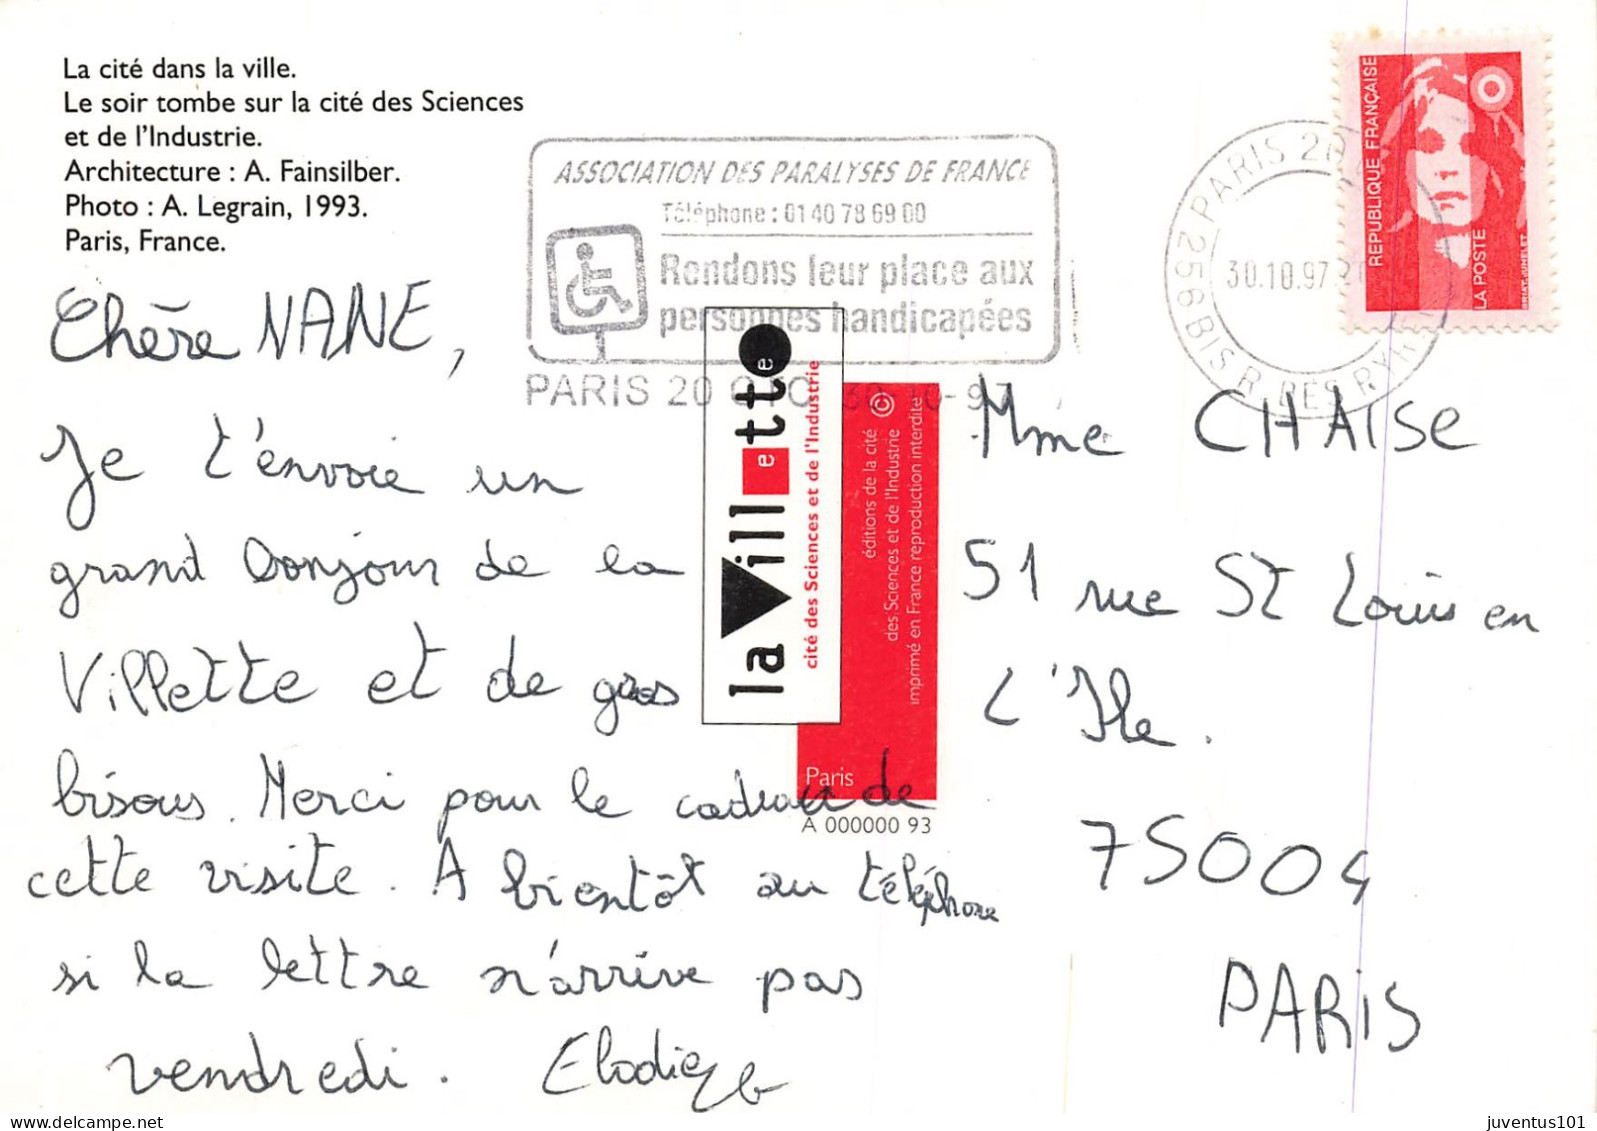 La cité dans la ville.
Le soir tombe sur la cité des Sciences
et de l'Industrie.
Architecture : A. Fainsilber.
Photo : A. Legrain, 1993.
Paris, France.
ASSOCIATION DES PARALYSES DE FRANCE
Téléphone : 01 40 78 69 00
Rendons leur place aux
personnes handicapées
PARIS 20 30-10-97
PARIS 20
30.10.97
256 BIS R. DES PYR
REPUBLIQUE FRANÇAISE
LA POSTE
BRIAT-JUMELET
Chère NANE,
Je t'envoie un
grand bonjour de la
Villette et de gros
bisous. Merci pour le cadeau de
cette visite. A bientôt au téléphone
si la lettre n'arrive pas
vendredi. Elodie
la Villette
cité des Sciences et de l'Industrie
©
éditions de la cité
des Sciences et de l'Industrie
imprimé en France reproduction interdite
Paris
A 000000 93
Mme CHAISE
51 rue St Louis en
L'Ile.
75004
PARIS
juventus101